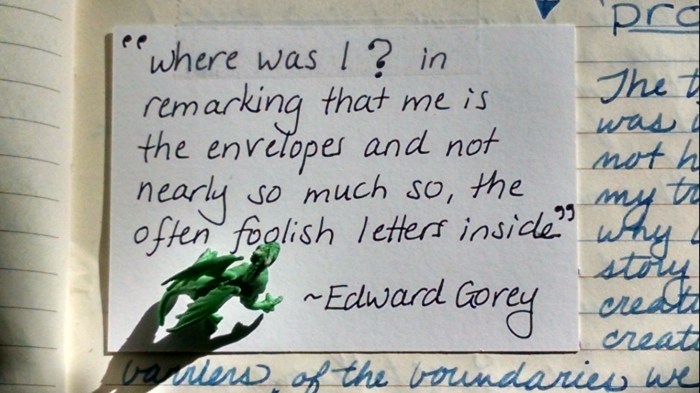 “where was I? in
remarking that me is
the envelopes and not
nearly so much so, the
often foolish letters inside”
~Edward Gorey
The
was
not
my
why
story
barriers, of the boundaries we